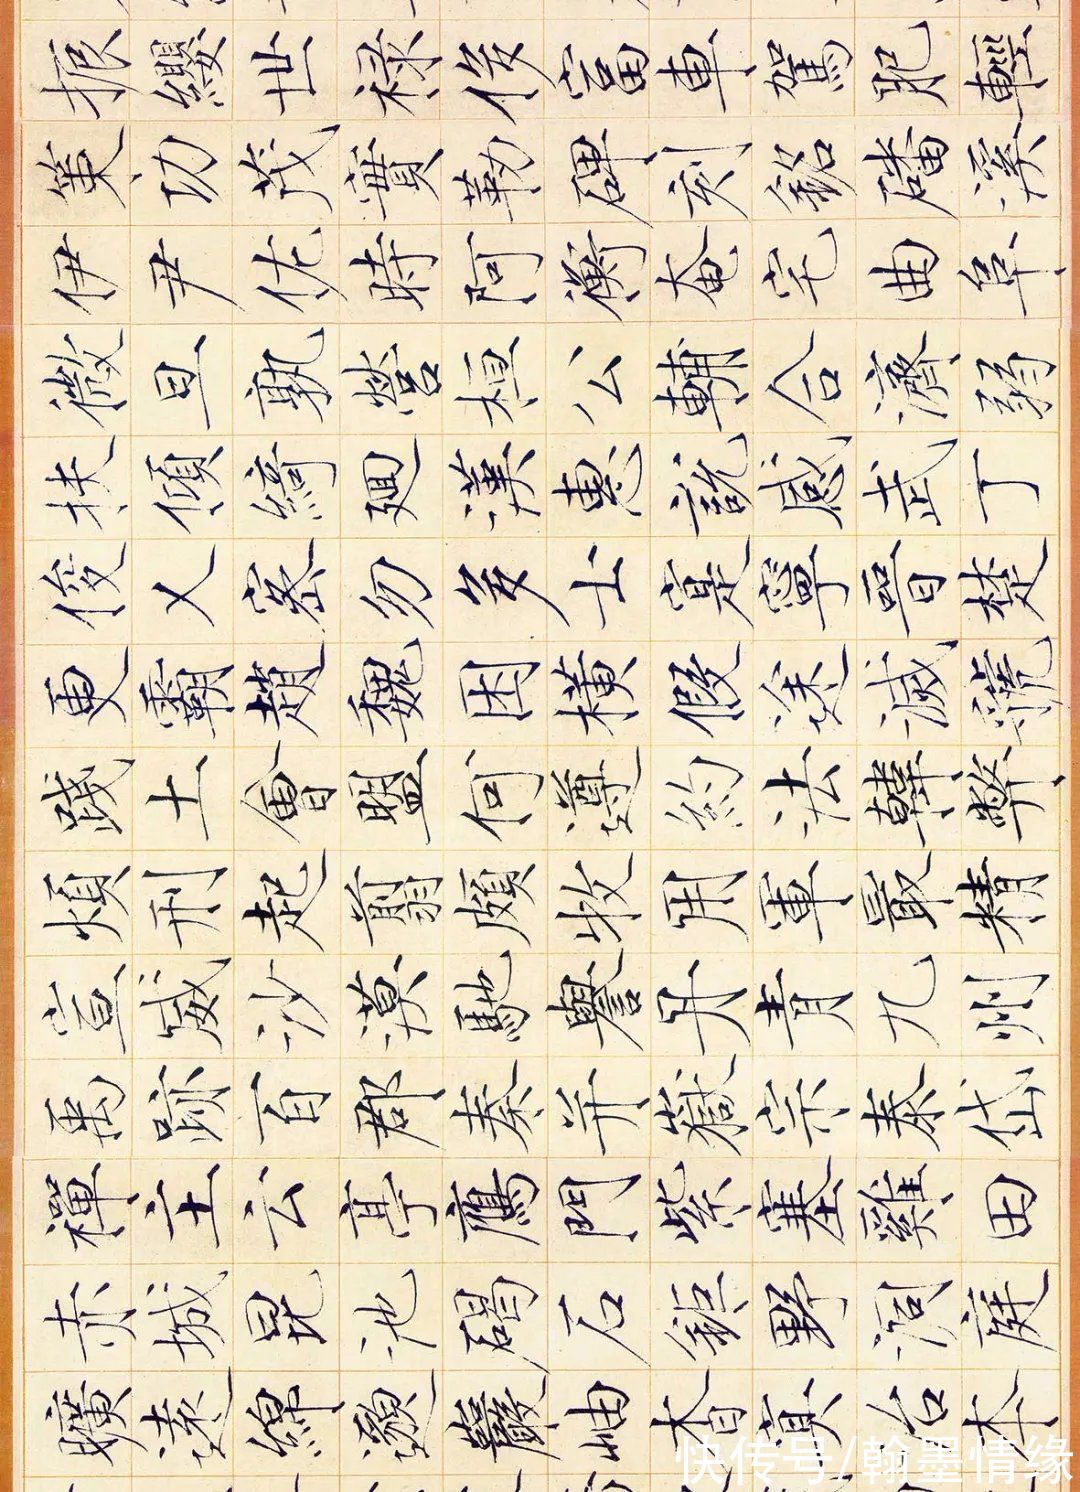 振纓世祿侈富車駕肥輕
策功茂實勒碑刻銘磻溪
伊尹佐時阿衡奄宅曲阜
微旦孰營桓公輔合濟弱
扶傾綺迴漢惠說感武丁
俊乂密勿多士寔寧晉楚
更霸趙魏困橫假途滅虢
踐土會盟何遵約法韓弊
煩刑起翦頗牧用軍最精
宣威沙漠馳譽丹青九州
禹跡百郡秦并嶽宗泰岱
禪主云亭鴈門紫塞雞田
赤城昆池碣石鉅野洞庭
曠遠綿邈巖岫杳冥治本
快传号/翰墨情缘